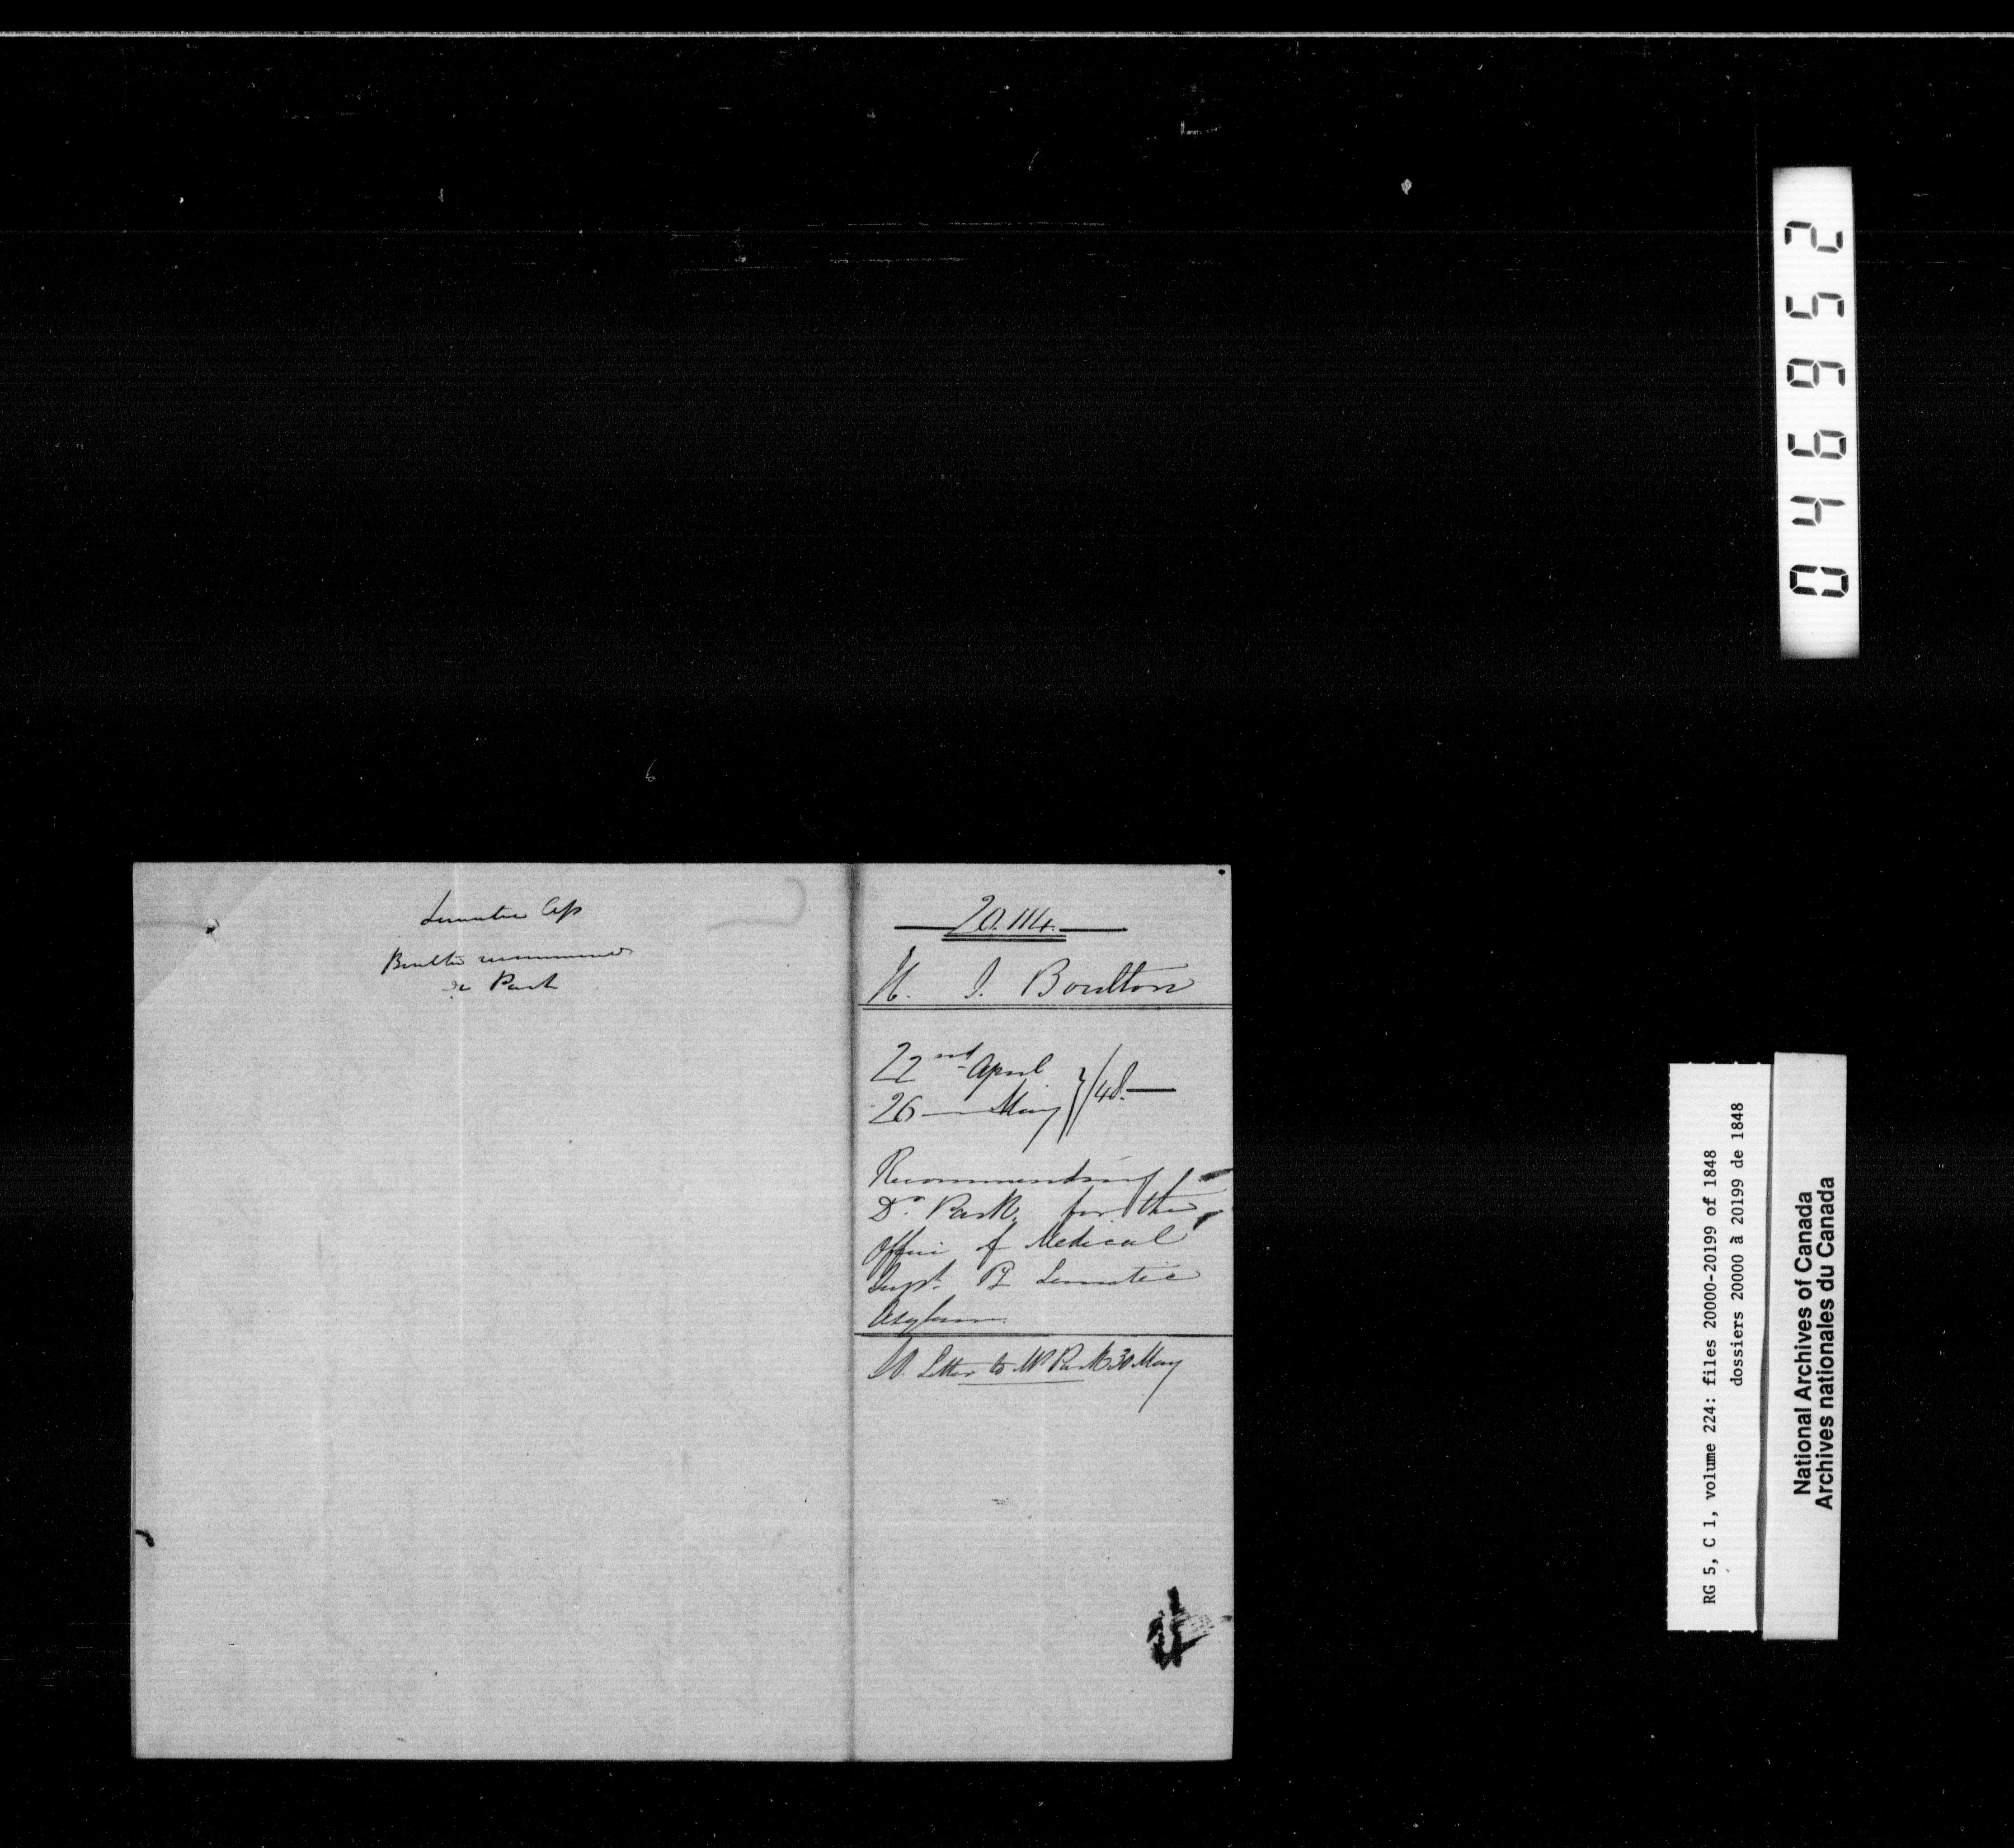 Lunatic Ap
Boulton recommends
Dr Park
20.114.
H. J. Boulton
22nd April
26 — May } /48. —
Recommending
Dr. Park, for the
Office of Medical
Supt. Pl Lunatic
Asylum.
Letter to Dr Park 30 May
046952
RG 5, C 1, volume 224: files 20000-20199 of 1848
dossiers 20000 à 20199 de 1848
National Archives of Canada
Archives nationales du Canada